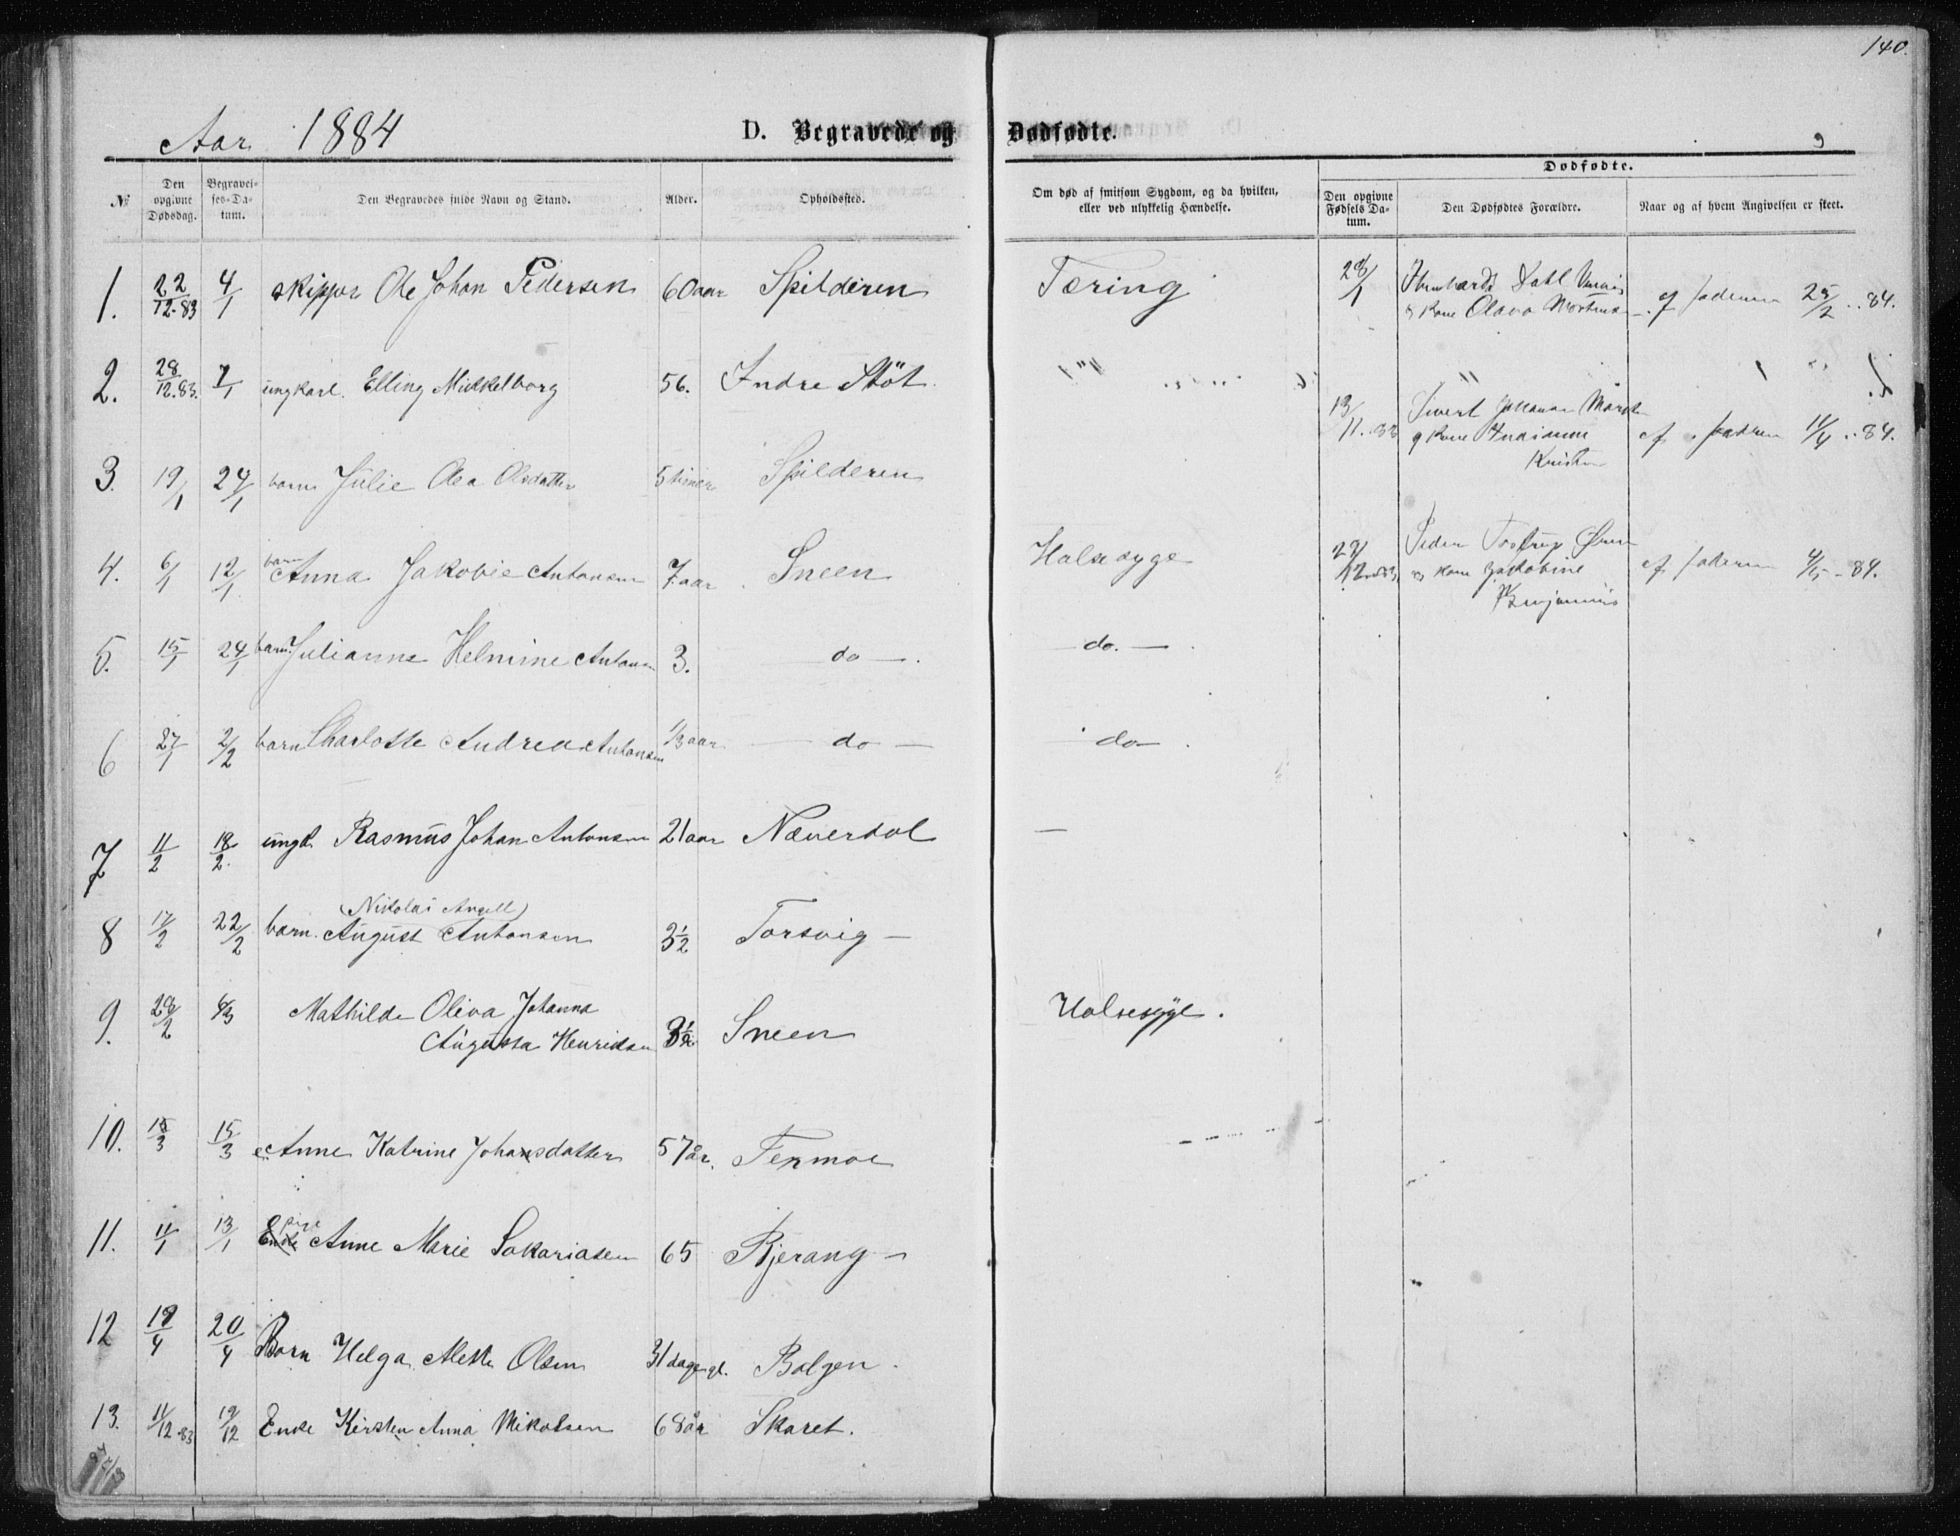 140.
Aar 1884
D. Begravede og Dødfødte.
№
Den opgivne Dødsdag.
Begravelses-Datum.
Den Begravedes fulde Navn og Stand.
Alder.
Opholdssted.
Om død af smitsom Sygdom, og da hvilken, eller ved ulykkelig Hændelse.
Dødfødte.
Den opgivne Fødsels Datum.
Den Dødfødtes Forældre.
Naar og af hvem Angivelsen er skeet.
1. 22/12-83 4/1 skipper Ole Johan Pedersen 60 aar Spilderen Tæring
28/1 Dahl & kone Olava af faderen 25/2 .. 84.
2. 28/12.83. 7/1 ungkarl. Elling Mikkelborg 56. Indre Støt
13/11..83 Sivert Johanna & kone Kristin af faderen 11/4 .. 84.
3. 19/1 24/1 barn Julie Olea Olsdatter 5 timer Spilderen
4. 6/1 12/1 barn Anna Jakobie Antonsen 7 aar Sneen Halssyge
Peder Tostrup & kone Jakobine af faderen 4/5 - 84.
5. 15/1 24/1 barn Julianne Helmine Antonsen 3. — do — . — do. —
6 27/1 2/2 barn Charlotte Andrea Antonsen 1/3 aar — do — do —
7 11/2 18/2. ungk. Rasmus Johan Antonsen 21 aar Næverdal —
(Nikolai Angell)
8 17/2 22/2 barn. August Antonsen 3½ Torsvig —
9. 28/2 6/3 Mathilde Oliva Johanna
Augusta Henriksen 3½ Sneen Halsesyge.
10. 15/3 Anne Katrine Johansdatter 57 år. Termoe
11. 11/1 13/1 pige Enke Anne Marie Sakariasen 65 Bjerang —
12 19/4 20/4 Barn Helga Mette Olsen 31 dage gl. Bolgen.
13. 11/12-83 19/12 Enke Kirsten Anna Mikalsen 68 år Skaret.